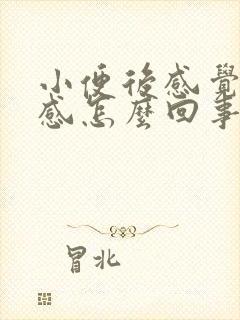 小便後感覺
感怎麼回事
冒北